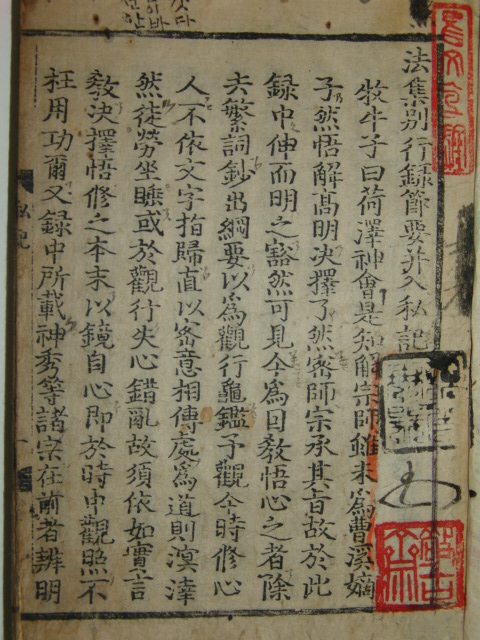 法集別行録節要并入私記
牧牛子曰荷澤神會是知解宗師雖未爲曹溪嫡
子然悟解高明決擇了然密師宗承其旨故於此
録中伸而明之豁然可見今爲因敎悟心之者除
去繁詞鈔出綱要以爲觀行龜鑑予觀今時修心
人不依文字指歸直以密意相傳處爲道則溟涬
然徒勞坐睡或於觀行失心錯亂故須依如實言
敎決擇悟修之本末以鏡自心即於時中觀照不
枉用功爾又録中所載神秀等諸宗在前者辨明
私記